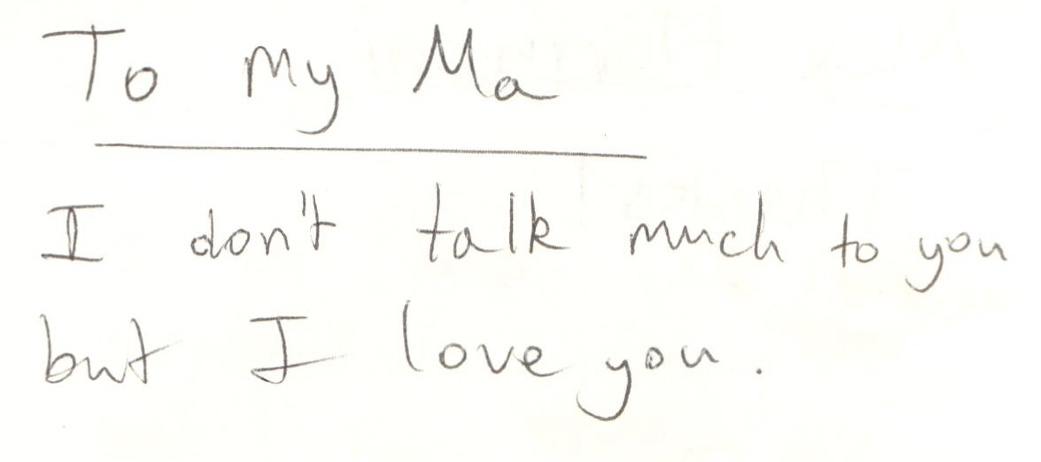 To My Ma
I don't talk much to you
but I love you.